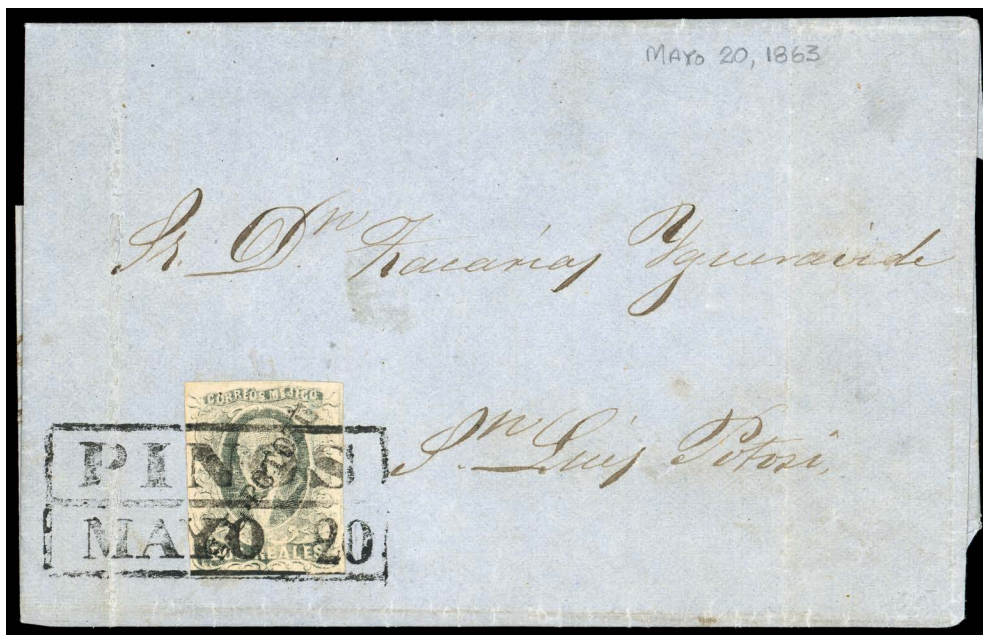 MAYO 20, 1863
Sr. Dn Zacarias Ygueravide
Sn Luis Potosi
CORREOS MEJICO
PINOS
MAYO 20
REALES